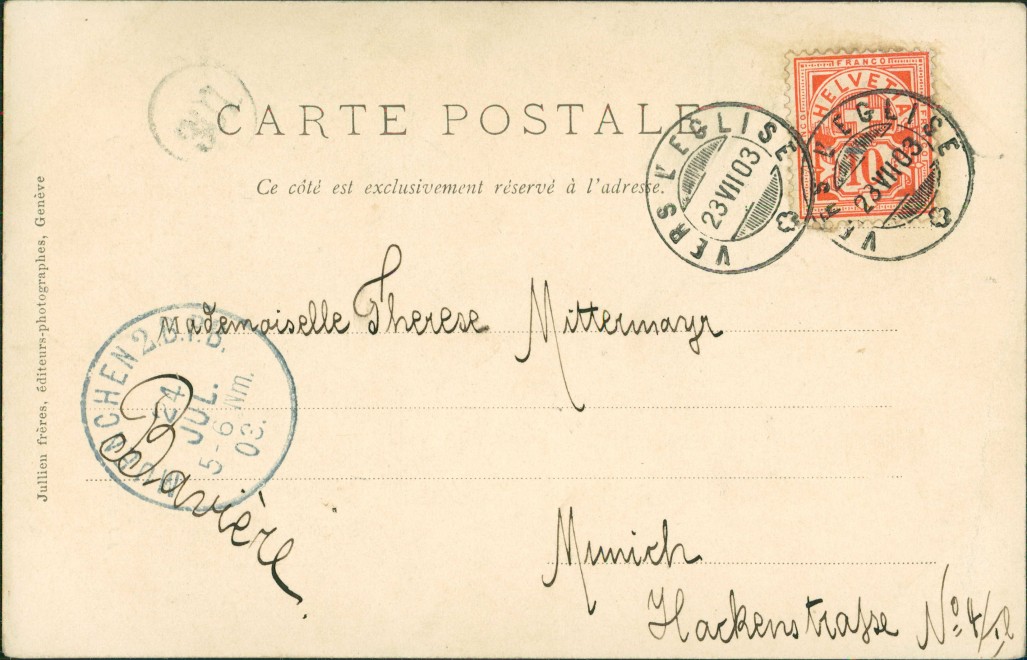 CARTE POSTALE
Ce côté est exclusivement réservé à l'adresse.
FRANCO
HELVETIA
10
VERS L'EGLISE
23 VII 03
VERS L'EGLISE
23 VII 03
Jullien frères, éditeurs-photographes, Genève
Mademoiselle Therese Mittermayr
MUENCHEN 2. B.P.B.
24
JUL.
5-6 Nm.
03.
Bavière.
Munich
Hackenstrasse No 4/